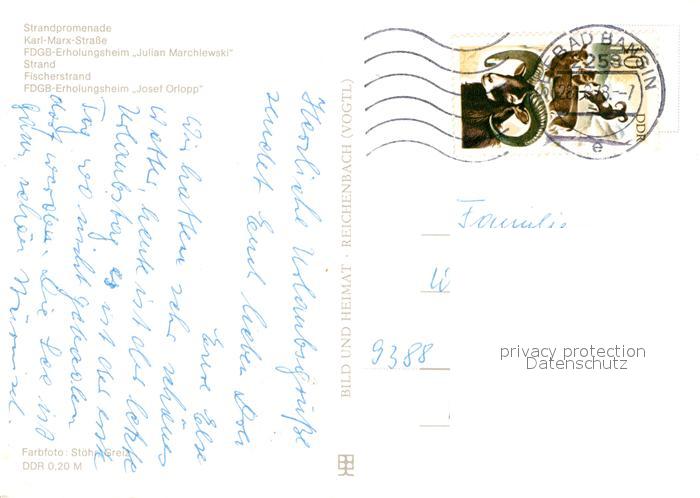 Strandpromenade
Karl-Marx-Straße
FDGB-Erholungsheim „Julian Marchlewski"
Strand
Fischerstrand
FDGB-Erholungsheim „Josef Orlopp"
Herzliche Urlaubsgrüße
sendet Euch lieben Drei
Eure Else
Wir hatten sehr schönes
Wetter, heute ist der letzte
Urlaubstag es ist der erste
Tag wo nicht gebadet
darf werden. Die See ist
ganz schön stürmisch.
Farbfoto: Stöhr, Greiz
DDR 0,20 M
BILD UND HEIMAT · REICHENBACH (VOGTL)
SEEBAD BANSIN
2253
e
DDR
Familie
W
9388
privacy protection
Datenschutz